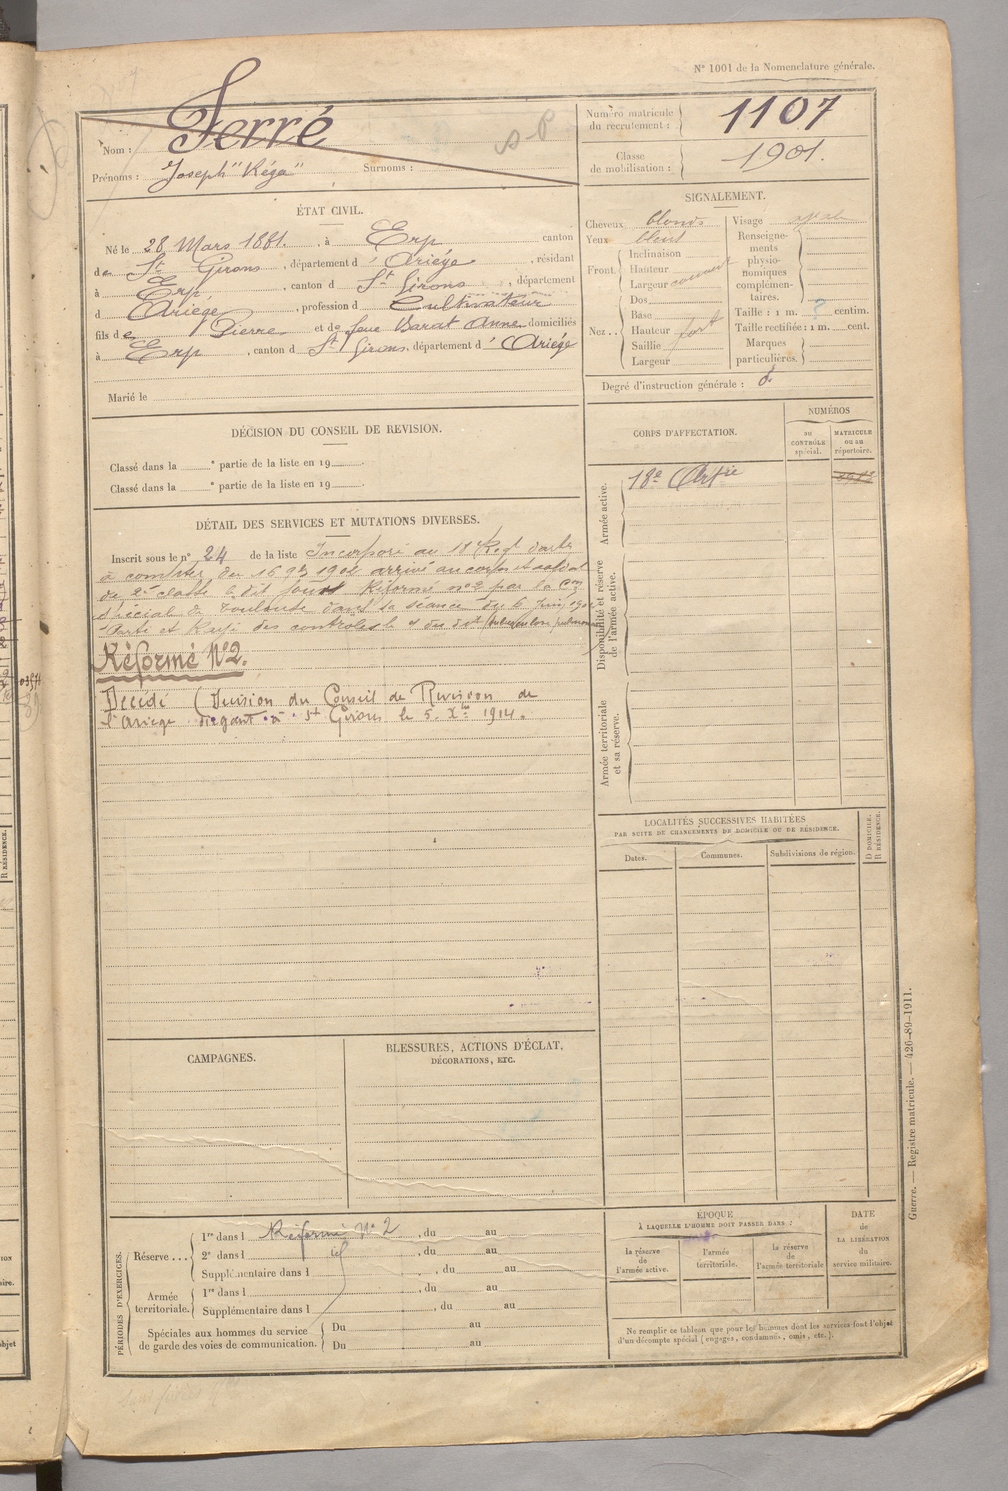 N° 1001 de la Nomenclature générale.
Nom : Ferré
Prénoms : Joseph "Réga" Surnoms :
S P
Numéro matricule du recrutement : 1107
Classe de mobilisation : 1901.
ÉTAT CIVIL.
Né le 28 Mars 1881, à Erp, canton
de St Girons, département d'Ariége, résidant
à Erp, canton d St Girons, département
d Ariége, profession de Cultivateur
fils de Pierre et de feue Barat Anne domiciliés
à Erp, canton d St Girons, département d'Ariége
Marié le
SIGNALEMENT.
Cheveux blonds Visage
Yeux bleus
Front
Inclinaison
Hauteur
Largeur
Nez
Dos
Base
Hauteur fort
Saillie
Largeur
Renseignements physionomiques complémentaires.
Taille : 1 m. ? centim.
Taille rectifiée : 1 m. cent.
Marques particulières.
Degré d'instruction générale :
DÉCISION DU CONSEIL DE REVISION.
Classé dans la e partie de la liste en 19
Classé dans la e partie de la liste en 19
CORPS D'AFFECTATION.
NUMÉROS
au CONTRÔLE spécial.
MATRICULE ou au répertoire.
Armée active.
18e Artrie
Disponibilité et réserve de l'armée active.
Armée territoriale et sa réserve.
DÉTAIL DES SERVICES ET MUTATIONS DIVERSES.
Inscrit sous le n° 24 de la liste Incorporé au 18e Regt d'artie
à compter du 16 9bre 1902 arrivé au corps et soldat
de 2e classe le dit jour Réformé no 2 par la Com
spéciale de Toulouse dans sa séance du 6 Juin
Parti et Rayé des contrôles le dudit
Réformé N°2.
Décédé (Décision du Conseil de Revision de
l'Ariège siégant à St Girons le 5. Xbre 1914.
LOCALITÉS SUCCESSIVES HABITÉES
PAR SUITE DE CHANGEMENTS DE DOMICILE OU DE RÉSIDENCE.
Dates.
Communes.
Subdivisions de région.
D DOMICILE. R RÉSIDENCE.
CAMPAGNES.
BLESSURES, ACTIONS D'ÉCLAT.
DÉCORATIONS, ETC.
PÉRIODES D'EXERCICES.
Réserve ...
1re dans l Réformé N° 2, du au
2e dans l id, du au
Supplémentaire dans l, du au
Armée territoriale.
1re dans l, du au
Supplémentaire dans l, du au
Spéciales aux hommes du service de garde des voies de communication.
Du au
Du au
ÉPOQUE
À LAQUELLE L'HOMME DOIT PASSER DANS :
la réserve de l'armée active.
l'armée territoriale.
la réserve de l'armée territoriale
DATE de LA LIBÉRATION du service militaire.
Ne remplir ce tableau que pour les hommes dont les services font l'objet
d'un décompte spécial (engagés, condamnés, omis, etc.).
Guerre. — Registre matricule. — 426-89-1911.